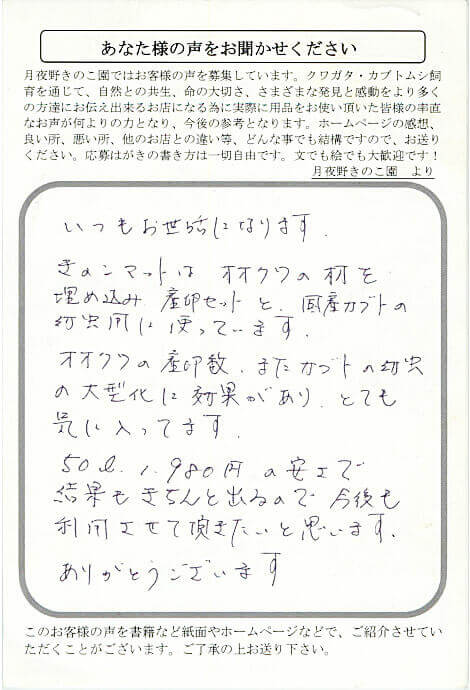 あなた様の声をお聞かせください
月夜野きのこ園ではお客様の声を募集しています。クワガタ・カブトムシ飼
育を通じて、自然との共生、命の大切さ、さまざまな発見と感動をより多く
の方達にお伝え出来るお店になる為に実際に用品をお使い頂いた皆様の率直
なお声が何よりの力となり、今後の参考となります。ホームページの感想、
良い所、悪い所、他のお店との違い等、どんな事でも結構ですので、お送り
ください。応募はがきの書き方は一切自由です。文でも絵でも大歓迎です！
月夜野きのこ園　より
いつもお世話になります.
きのンマットは オオクワの材を
埋め込み 産卵セットと、国産カブトの
幼虫用に使っています.
オオクワの産卵数、またカブトの幼虫
の大型化に効果があり、とても
気に入ってます.
50ℓ、1,980円の安さで
結果もきちんと出るので 今後も
利用させて頂きたいと思います.
ありがとうございます
このお客様の声を書籍など紙面やホームページなどで、ご紹介させてい
ただくことがございます。ご了承の上お送り下さい。